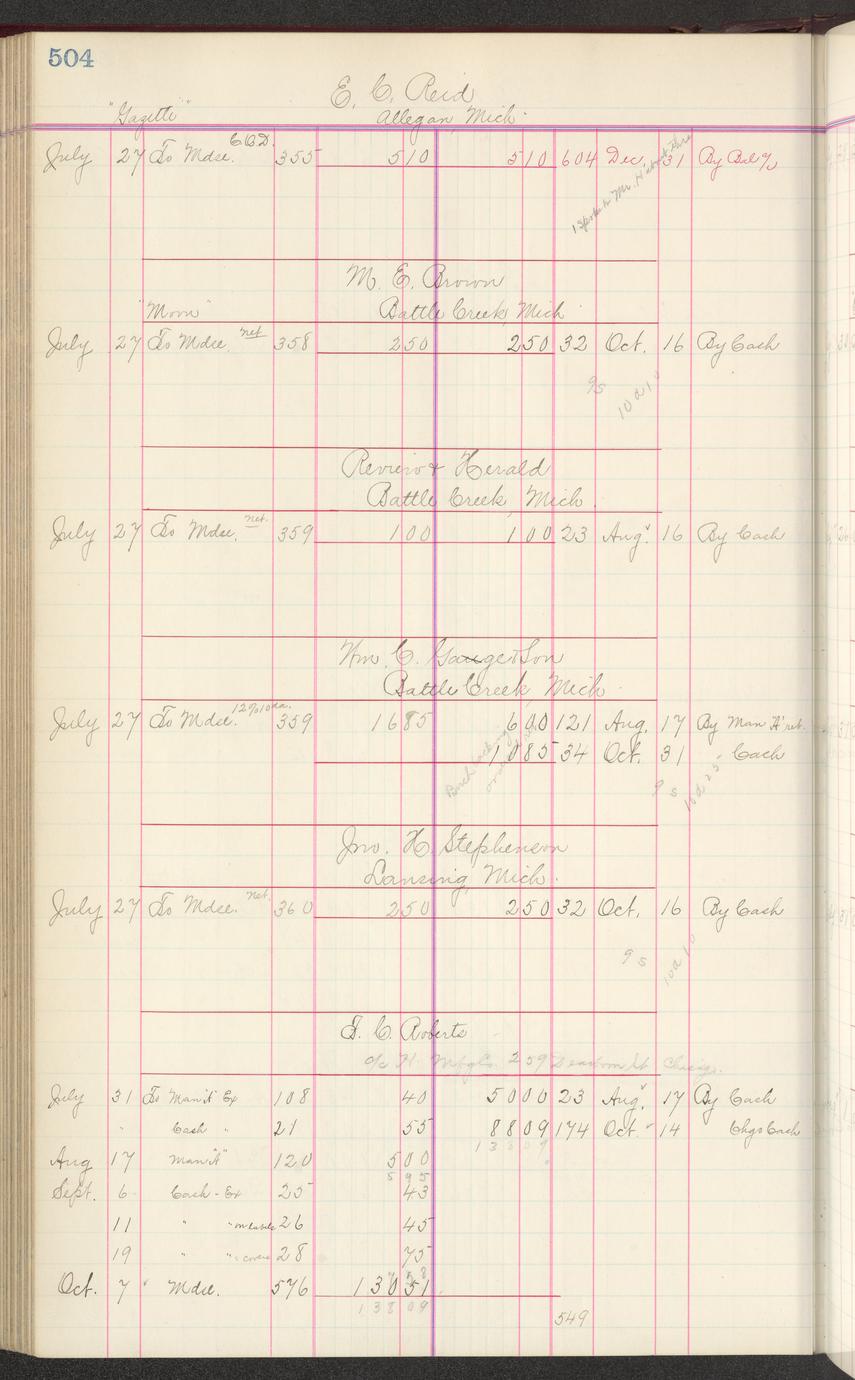 504
E. C. Reid
"Gazette" Allegan, Mich.
July 27 To Mdse. C.O.D. 355 510 510 604 Dec. 31 By Bal %
M. E. Brown
"Moon" Battle Creek Mich
July 27 To Mdse. net 358 250 250 32 Oct. 16 By Cash
9s 10d10
Review & Herald
Battle Creek, Mich.
July 27 To Mdse. net. 359 100 100 23 Aug. 16 By Cash
Wm. C. Gauge & Son
Battle Creek, Mich.
July 27 To Mdse. 12%10da. 359 1685 600 121 Aug. 17 By Man "A" ret.
1085 34 Oct. 31 " Cash
9s 10d25
Jno. H. Stephenson
Lansing, Mich.
July 27 To Mdse. net. 360 250 250 32 Oct. 16 By Cash
9s 10d10
T. C. Roberts
c/o H. Mfg Co. 259 Dearborn St. Chicago.
July 31 To Man "A" Ex 108 40 5000 23 Aug. 17 By Cash
" Cash " 21 55 8809 174 Oct. " 14 Chgs Cash
13809
Aug 17 Man "A" 120 500
595
Sept. 6 Cash - Ex 25 43
11 " " on labels 26 45
19 " " " covers 28 75
758
Oct. 7 " Mdse. 576 13051
13809
549